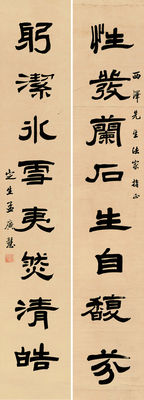 性發蘭石生自馥芬
西澤先生法家指正
躬潔冰雪夷然清皓
定生孟廣慧